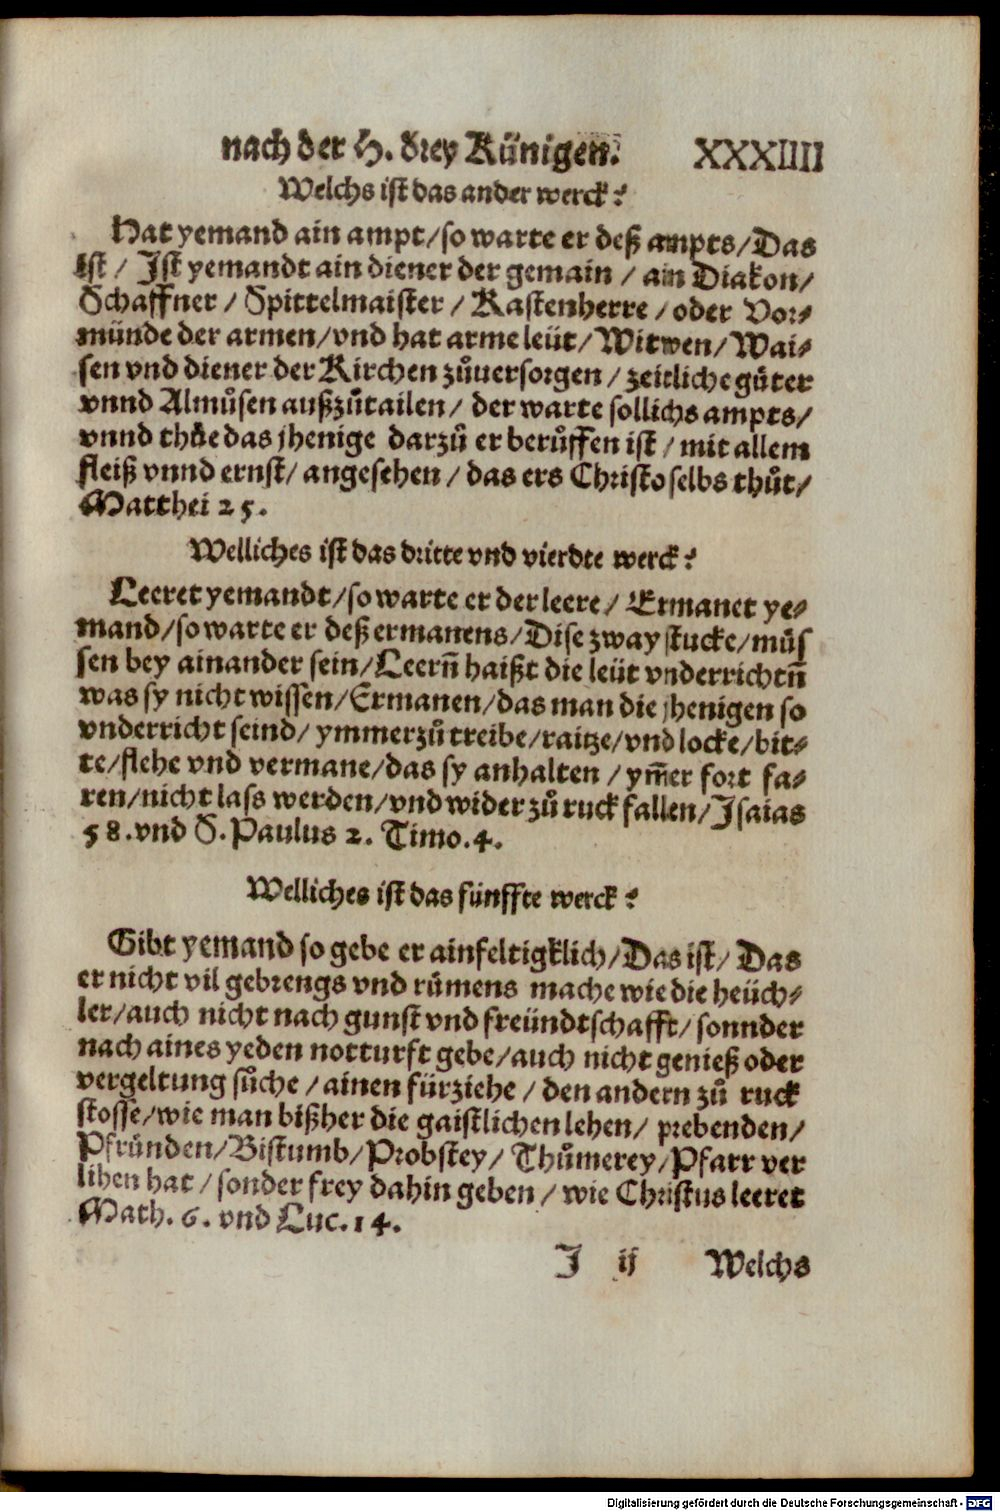 nach der H. drey Künigen. XXXIIII
Welchs ist das ander werck?
Hat yemand ain ampt/so warte er deß ampts/Das
ist/ Ist yemandt ain diener der gemain / ain Diakon/
Schaffner / Spittelmaister / Kastenherre / oder Vor⸗
münde der armen/vnd hat arme leüt/Witwen/Wai⸗
sen vnd diener der Kirchen zůuersorgen / zeitliche gůter
vnnd Almůsen außzůtailen/ der warte sollichs ampts/
vnnd thůe das jhenige darzů er berůffen ist / mit allem
fleiß vnnd ernst/ angesehen / das ers Christo selbs thůt/
Matthei 25.
Welliches ist das dritte vnd vierdte werck?
Leeret yemandt/so warte er der leere/ Ermanet ye⸗
mand/so warte er deß ermanens/Dise zway stucke/můs
sen bey ainander sein/Leern̄ haißt die leüt vnderrichtn̄
was sy nicht wissen/Ermanen/das man die jhenigen so
vnderricht seind/ ymmerzů treibe/raitze/vnd locke/bit⸗
te/flehe vnd vermane/das sy anhalten / ym̄er fort fa⸗
ren/nicht lass werden/vnd wider zů ruck fallen/Isaias
58.vnd S. Paulus 2. Timo.4.
Welliches ist das fünffte werck?
Gibt yemand so gebe er ainfeltigklich/Das ist/ Das
er nicht vil gebrengs vnd růmens mache wie die heüch⸗
ler/auch nicht nach gunst vnd freündtschafft/ sonnder
nach aines yeden notturft gebe/auch nicht genieß oder
vergeltung sůche / ainen fürziehe / den andern zů ruck
stosse/wie man bißher die gaistlichen lehen/ prebenden/
Pfründen/Bistumb/Probstey/ Thůmerey/Pfarr ver
lihen hat / sonder frey dahin geben / wie Christus leeret
Math. 6. vnd Luc.14.
J ij Welchs
Digitalisierung gefördert durch die Deutsche Forschungsgemeinschaft - DFG